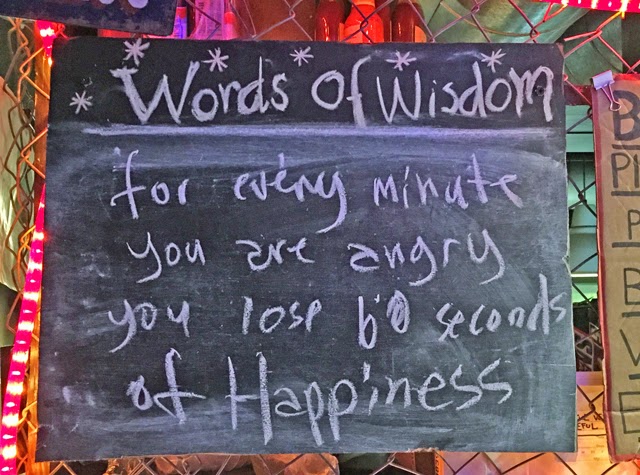 Words Of Wisdom
for every minute
you are angry
you lose 60 seconds
of Happiness